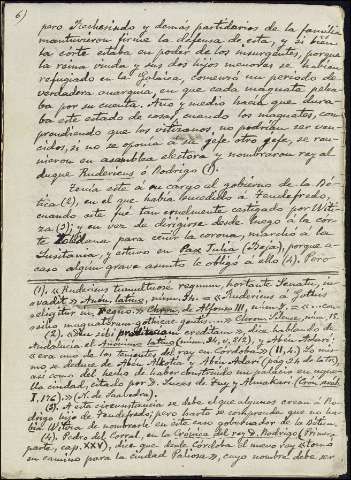 6)
pero Rechesindo y demás partidarios de la familia
mantuvieron firme la defensa de esta, y si bien
la córte estaba en poder de los insurgentes, porque
la reina viuda y sus dos hijos menores se habían
refugiado en la Galicia, comenzó un periodo de
verdadera anarquía, en que cada magnate pelea-
ba por su cuenta. Año y medio hacía que dura-
ba este estado de cosas, cuando los magnates, com-
prendiendo que los vitizanos no podrían ser ven-
cidos, si no se oponía á su gefe otro gefe, se reu-
nieron en asamblea electora y nombraron rey al
duque Rudericus ó Rodrigo (1).
Tenía este á su cargo el gobierno de la Bé-
tica (2), en el que había sucedido á Teudefredo,
cuando este fué tan cruelmente castigado por Witi-
za (3); y en vez de dirigirse desde luego á la cór-
te toledana para ceñir la corona, marchó á la
Lusitania, y estuvo en Pax Julia (Beja), porque a-
caso algun grave asunto le obligó á ello (4). Pero
(1). «Rudericus tumultuose regnum, hortante Senatu, in-
vadit» Anón. latino, núm. 34. = «Rudericus a Gothis
eligitur in regno.» Chron. de Alfonso III, núm. 7. =
(2). dice hablando de
Andalucía el Anónimo latino (núm. 34, v. 212), y Aben Adarí:
«era uno de los tenientes del rey en Córdoba» (II, 4). Lo mis-
mo se deduce de Aben Alatir y Aben Adari (pág. 34 de este),
así como del hecho de haber construido un palacio en aque-
lla ciudad, citado por D. Lucas de Tuy y Almakari
I, 176).» (N. de Saavedra).
(3). A esta circunstancia se debe el que algunos crean á Ro-
drigo hijo de Teudefredo; pero harto se comprende que no ha-
bía Witiza de nombrarle en este caso gobernador de la Bética.
(4). Pedro del Corral, en la Crónica del rey D. Rodrigo (Primera
parte, cap. XXV), dice que desde Córdoba el nuevo rey «tomó
en camino para la ciudad Paliosa», cuyo nombre debe ser